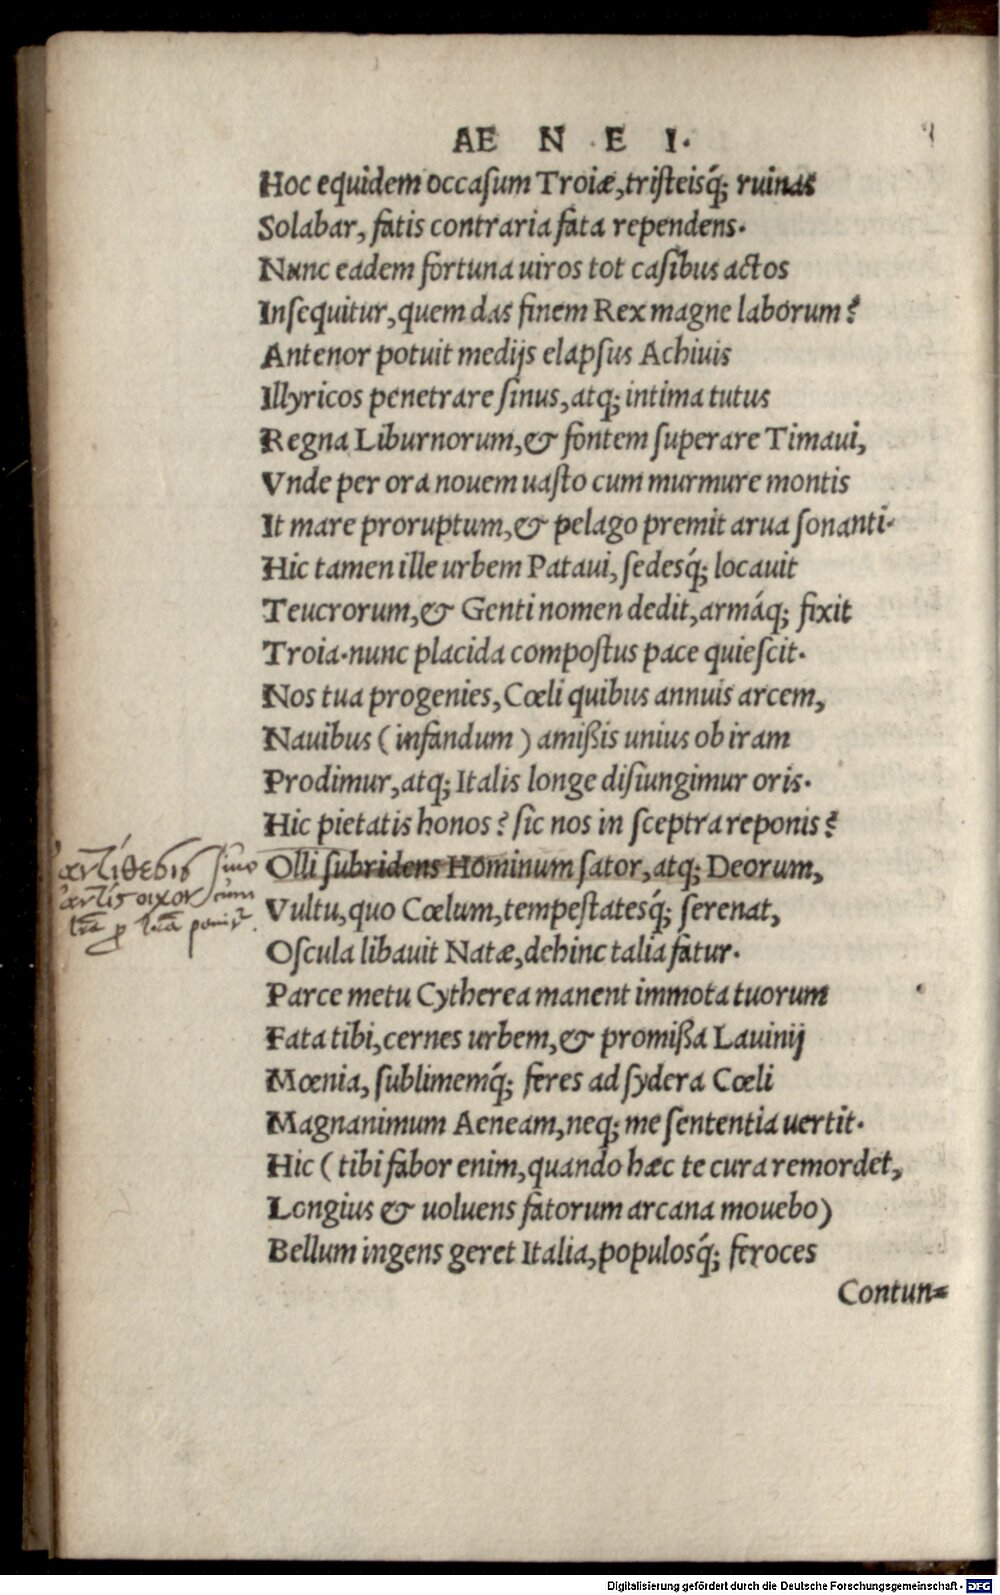 AE N E I.
Hoc equidem occaſum Troiæ, triſteisq́; ruinas
Solabar, fatis contraria fata rependens.
Nunc eadem fortuna uiros tot caſibus actos
Inſequitur, quem das finem Rex magne laborum?
Antenor potuit medijs elapſus Achiuis
Illyricos penetrare ſinus, atq; intima tutus
Regna Liburnorum, & fontem ſuperare Timaui,
Vnde per ora nouem uaſto cum murmure montis
It mare proruptum, & pelago premit arua ſonanti.
Hic tamen ille urbem Pataui, ſedesq́; locauit
Teucrorum, & Genti nomen dedit, armáq; fixit
Troia. nunc placida compoſtus pace quieſcit.
Nos tua progenies, Cœli quibus annuis arcem,
Nauibus (infandum) amißis unius ob iram
Prodimur, atq; Italis longe diſiungimur oris.
Hic pietatis honos? ſic nos in ſceptra reponis?
αντίθεσις ſiue
Olli ſubridens Hominum ſator, atq; Deorum,
cum
Vultu, quo Cœlum, tempeſtatesq́; ſerenat,
Oſcula libauit Natæ, dehinc talia fatur.
Parce metu Cytherea manent immota tuorum
Fata tibi, cernes urbem, & promißa Lauinij
Mœnia, ſublimemq́; feres ad ſydera Cœli
Magnanimum Aeneam, neq; me ſententia uertit.
Hic (tibi fabor enim, quando hæc te cura remordet,
Longius & uoluens fatorum arcana mouebo)
Bellum ingens geret Italia, populosq́; feroces
Contun=
Digitalisierung gefördert durch die Deutsche Forschungsgemeinschaft - DFG